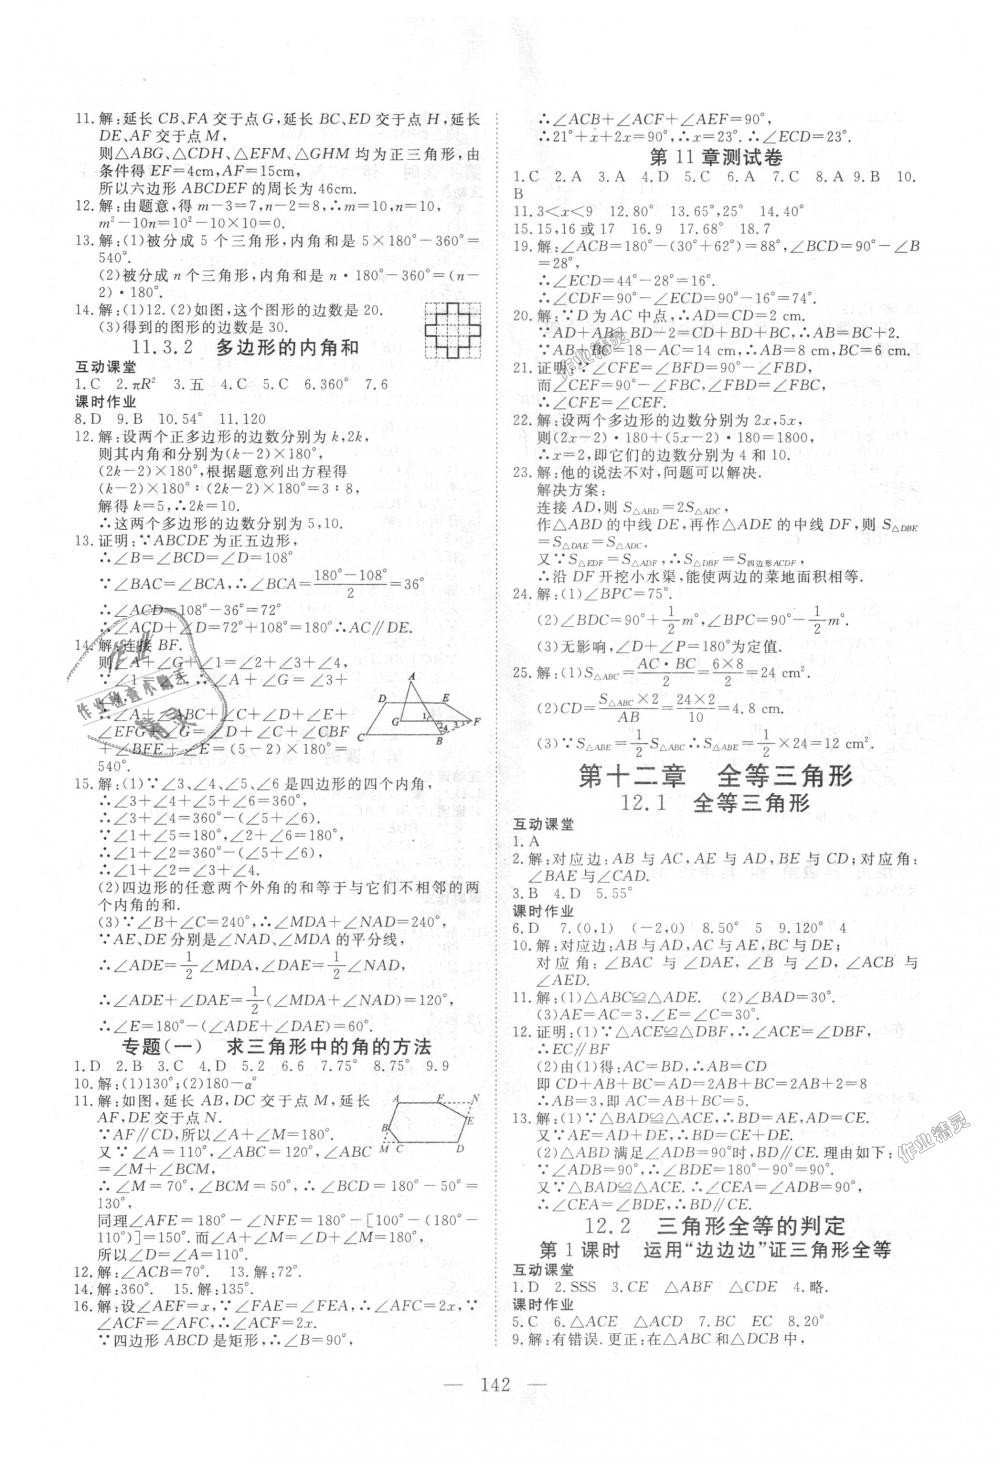 11. 解:延长 CB、FA 交于点 G,延长 BC、ED 交于点 H,延长
DE、AF 交于点 M,
则△ABG、△CDH、△EFM、△GHM 均为正三角形,由
条件得 EF=4cm,AF=15cm,
所以六边形 ABCDEF 的周长为 46cm.
12. 解:由题意,得 m-3=7,n-2=8,∴m=10,n=10,
m²-10n=10²-10×10=0.
13. 解:(1)被分成 5 个三角形,内角和是 5×180°-360°=
540°.
(2)被分成 n 个三角形,内角和是 n·180°-360°=(n-
2)·180°.
14. 解:(1)12. (2)如图,这个图形的边数是 20.
(3)得到的图形的边数是 30.
11.3.2 多边形的内角和
互动课堂
1. C 2. πR² 3. 五 4. C 5. C 6. 360° 7. 6
课时作业
8. D 9. B 10. 54° 11. 120
12. 解:设两个正多边形的边数分别为 k,2k,
则其内角和分别为(k-2)×180°,
(2k-2)×180°,根据题意列出方程得
(k-2)×180°:(2k-2)×180°=3:8,
解得 k=5,∴2k=10.
∴这两个多边形的边数分别为 5,10.
13. 证明:∵ABCDE 为正五边形,
∴∠B=∠BCD=∠D=108°
∵∠BAC=∠BCA,∴∠BCA=(180°-108°)/2=36°
∴∠ACD=108°-36°=72°
∴∠ACD+∠D=72°+108°=180°∴AC∥DE.
14. 解:连接 BF.
则∠A+∠G+∠1=∠2+∠3+∠4+
∠A+∠G=∠2+∠3+∠4,
∴∠A+∠ABC+∠C+∠D+∠E+
∠EFG+∠G=∠C+∠D+∠E+∠CBF
+∠BFE+∠E=(5-2)×180°=
540°.
15. 解:(1)∵∠3、∠4、∠5、∠6 是四边形的四个内角,
∴∠3+∠4+∠5+∠6=360°,
∴∠3+∠4=360°-(∠5+∠6).
∵∠1+∠5=180°,∠2+∠6=180°,
∴∠1+∠2=360°-(∠5+∠6).
∴∠1+∠2=∠3+∠4.
(2)四边形的任意两个外角的和等于与它们不相邻的两
个内角的和.
(3)∵∠B+∠C=240°,∴∠MDA+∠NAD=240°,
∵AE、DE 分别是∠NAD、∠MDA 的平分线,
∴∠ADE=1/2∠MDA,∠DAE=1/2∠NAD,
∴∠ADE+∠DAE=1/2(∠MDA+∠NAD)=120°,
∴∠E=180°-(∠ADE+∠DAE)=60°.
专题(一) 求三角形中的角的方法
1. D 2. B 3. C 4. D 5. 2 6. 6 7. 75° 8. 75° 9. 9
10. 解:(1)130°;(2)180-α°
11. 解:如图,延长 AB,DC 交于点 M,延长
AF,DE 交于点 N.
∵AF∥CD,所以∠A+∠M=180°.
又∵∠A=110°,∠BCD=120°,∠ABC
=∠M+∠BCM,
∴∠M=70°,∠BCM=50°,∴∠BCD=180°-50°=
130°,
同理∠AFE=180°-∠NFE=180°-[100°-(180°-
110°)]=150°.而∠A=∠M=180°,∠N+∠D=180°,
所以∠D=∠A=110°.
12. 解:∠ACB=70°. 13. 解:∠A=72°.
14. 解:360°. 15. 解:135°.
16. 解:设∠AEF=x,∵∠FAE=∠FEA,∴∠AFC=2x,∵
∠ACF=∠AFC,∴∠ACF=2x.
∵四边形 ABCD 是矩形,∴∠B=90°,
∴∠ACB+∠ACF+∠AEF=90°,
∴21°+x+2x=90°,∴x=23°,∴∠ECD=23°.
第 11 章测试卷
1. C 2. A 3. A 4. D 5. C 6. A 7. C 8. A 9. B 10.
B
11. 3<x<9 12. 80° 13. 65°,25° 14. 40°
15. 15,16 或 17 16. 9 17. 68° 18. 7
19. 解:∠ACB=180°-(30°+62°)=88°,∠BCD=90°-∠B
=28°,
∴∠ECD=44°-28°=16°.
∴∠CDF=90°-∠ECD=90°-16°=74°.
20. 解:∵D 为 AC 中点,∴AD=CD=2 cm.
∵AD+AB+BD-2=CD+BD+BC,∴AB=BC+2.
∵AB+BC=18-AC=14 cm,∴AB=8 cm,BC=6 cm.
21. 证明:∵∠CFE=∠BFD=90°-∠FBD,
而∠CEF=90°-∠FBC,∠FBC=∠FBD,
∴∠CFE=∠CEF.
22. 解:设两个多边形的边数分别为 2x,5x,
则(2x-2)·180+(5x-2)·180=1800,
∴x=2,即它们的边数分别为 4 和 10.
23. 解:他的说法不对,问题可以解决.
解决方案:
连接 AD,则 S△ABD=2S△ADC,
作△ABD 的中线 DE,再作△ADE 的中线 DF,则 S△DBE
=S△DAE=S△ADC.
又∵S△EDF=S△ADF,∴S△DBF=S四边形ACDF,
∴沿 DF 开挖小水渠,能使两边的菜地面积相等.
24. 解:(1)∠BPC=75°.
(2)∠BDC=90°+1/2m°,∠BPC=90°+1/2m°.
(3)无影响,∠D+∠P=180°为定值.
25. 解:(1)S△ABC=(AC·BC)/2=(6×8)/2=24 cm².
(2)CD=(S△ABC×2)/AB=(24×2)/10=4.8 cm.
(3)∵S△ABE=1/2S△ABC∴S△ABE=1/2×24=12 cm².
第十二章 全等三角形
12.1 全等三角形
互动课堂
1. A
2. 解:对应边:AB 与 AC,AE 与 AD,BE 与 CD;对应角:
∠BAE 与∠CAD.
3. B 4. D 5. 55°
课时作业
6. D 7. (0,1) (-2,0) 8. 50° 5 9. 120° 4
10. 解:对应边:AB 与 AD,AC 与 AE,BC 与 DE;
对应角:∠BAC 与∠DAE,∠B 与∠D,∠ACB 与
∠AED.
11. 解:(1)△ABC≌△ADE. (2)∠BAD=30°.
(3)AE=AC=3,∠E=∠C=30°.
12. 证明:(1)∵△ACE≌△DBF,∴∠ACE=∠DBF,
∴EC∥BF
(2)由(1)得:AC=BD,∴AB=CD
即 CD+AB+BC=AD=2AB+BC=2AB+2=8
∴AB=3,即 AC=AB+BC=5.
13. 解:(1)∵△BAD≌△ACE,∴BD=AE,AD=CE.
又∵AE=AD+DE,∴BD=DE+CE.
(2)△ABD 满足∠ADB=90°时,BD∥CE. 理由如下:
∵∠ADB=90°,∴∠BDE=180°-90°=90°.
又∵△BAD≌△ACE,∴∠CEA=∠ADB=90°,
∴∠CEA=∠BDE,∴BD∥CE.
12.2 三角形全等的判定
第 1 课时 运用“边边边”证三角形全等
互动课堂
1. D 2. SSS 3. CE △ABF △CDE 4. 略.
课时作业
5. C 6. △ACE △ACD 7. BC EC 8. 20°
9. 解:有错误. 更正:在△ABC 和△DCB 中,
142